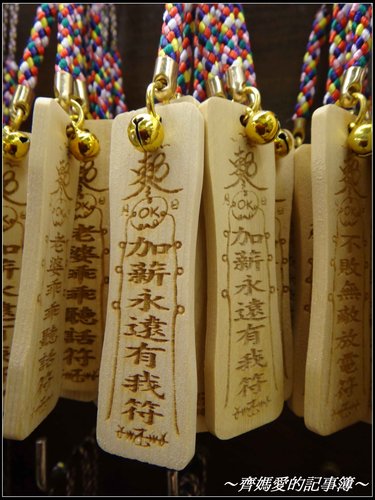 老婆乖乖聽話符
老婆乖乖聽話符
OK
加薪永遠有我符
OK
加薪永遠有我符
不敗無敵放電符
～齊媽愛的記事簿～